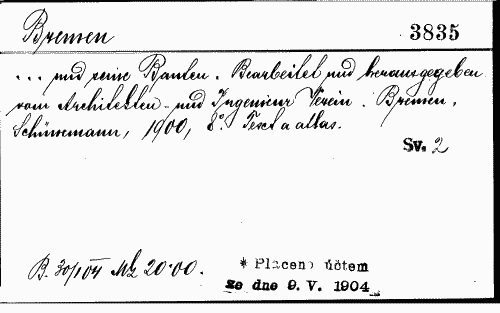 Bremen 3835
... und seine Bauten. Bearbeitet und herausgegeben
vom Architekten- und Ingenieur Verein. Bremen,
Schünemann, 1900, 8°. Text a atlas.
Sv. 2
B. 30/I 04 Mk 20·00.
* Placeno účtem
ze dne 9. V. 1904